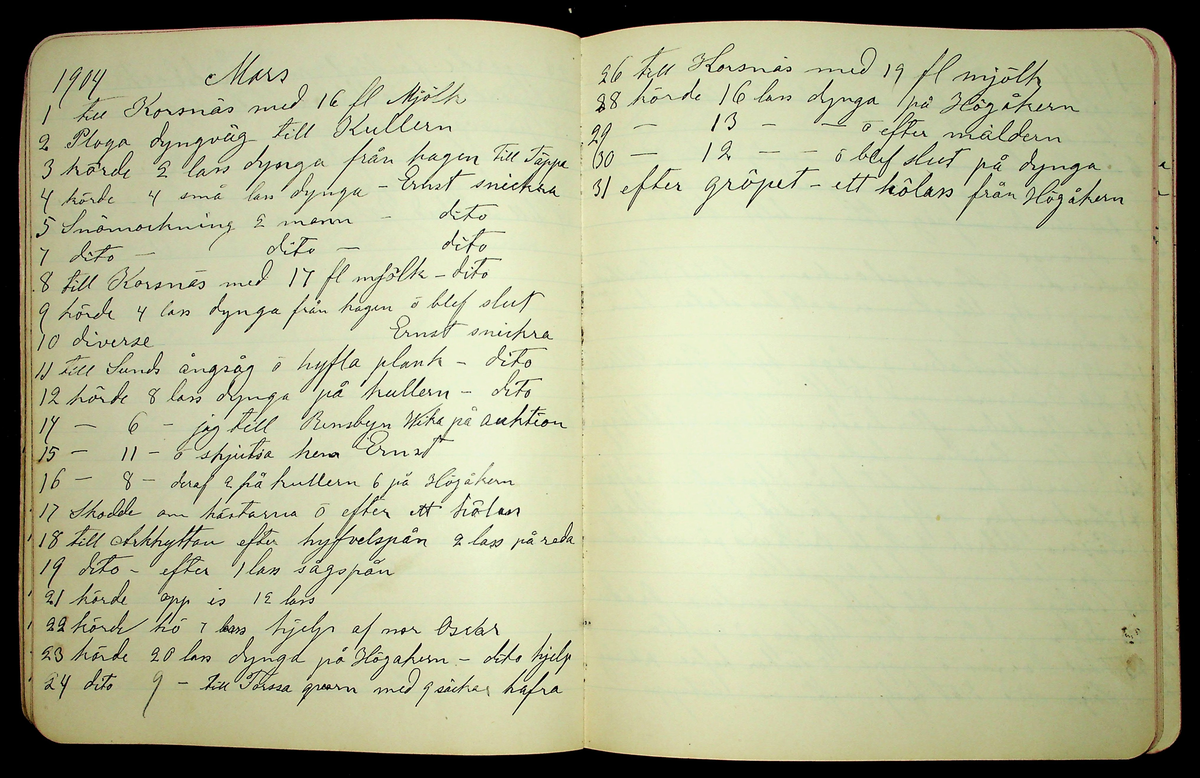 1904 Mars
1 till Korsnäs med 16 fl Mjölk
2 Ploga dyngväg till Kullern
3 körde 2 lass dynga från hagen till Täppa
4 körde 4 små lass dynga - Ernst snickra
5 Snömockning 2 mann - dito
7 dito - dito - dito
8 till Korsnäs med 17 fl mjölk - dito
9 körde 4 lass dynga från hagen ö blef slut
10 diverse Ernst snickra
11 till Sunds ångsåg ö hyfla plank - dito
12 körde 8 lass dynga på kullern - dito
14 - 6 - jag till Rensbyn Wika på auktion
15 - 11 - ö skjutsa hem Ernst
16 - 8 - deraf 2 på kullern 6 på Högåkern
17 Skodde om hästarna ö efter ett hölass
18 till Arkhyttan efter hyfvelspån 2 lass på reda
19 dito - efter 1 lass sågspån
21 körde opp is 12 lass
22 körde hö 7 lass hjelp af mor Oscar
23 körde 20 lass dynga på Högåkern - dito hjelp
24 dito 9 - till Torssa qvarn med 9 säckar hafra
26 till Korsnäs med 19 fl mjölk
28 körde 16 lass dynga på Högåkern
29 - 13 - - ö efter mäldern
30 - 12 - - ö blef slut på dynga
31 efter gröpet - ett hölass från Högåkern